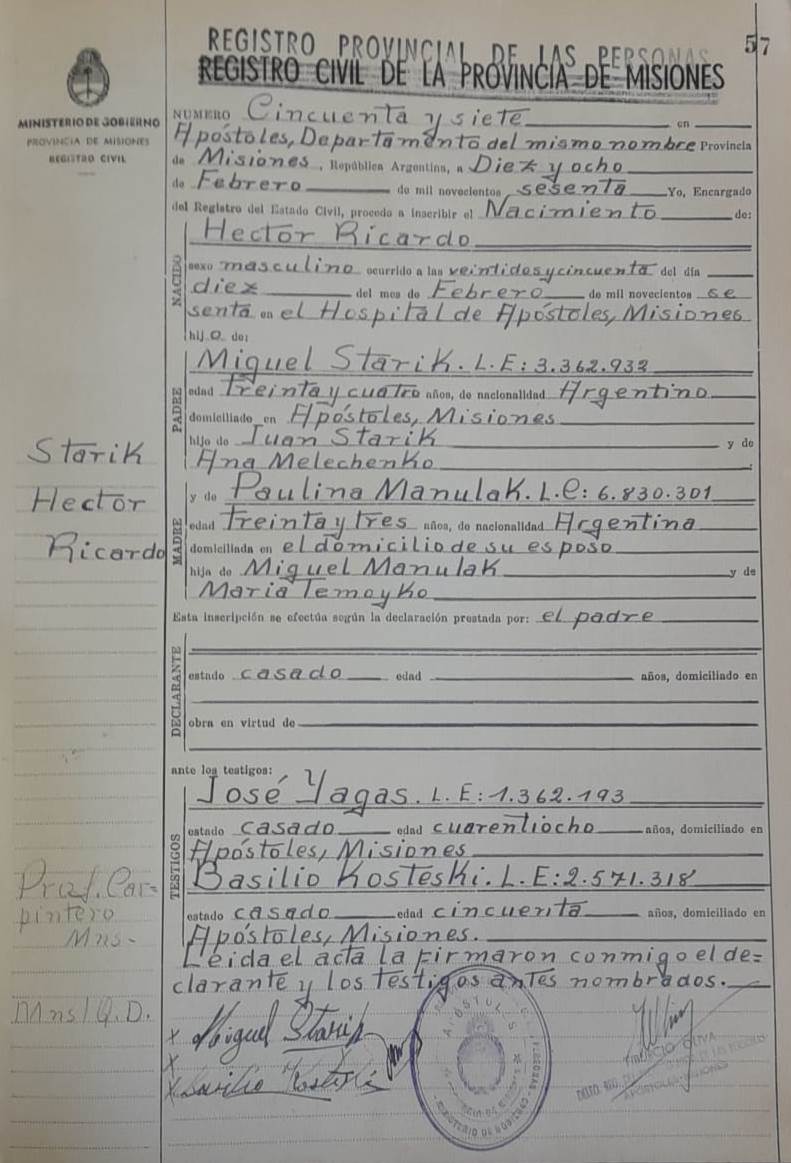 57
REGISTRO PROVINCIAL DE LAS PERSONAS
REGISTRO CIVIL DE LA PROVINCIA DE MISIONES
MINISTERIO DE GOBIERNO
PROVINCIA DE MISIONES
REGISTRO CIVIL
NUMERO Cincuenta y siete en
Apostoles, Departamento del mismo nombre Provincia
de Misiones, República Argentina, a Diez y ocho
de Febrero de mil novecientos sesenta Yo, Encargado
del Registro del Estado Civil, procedo a inscribir el Nacimiento de:
NACIDO
Hector Ricardo
sexo masculino ocurrido a las veintidos y cincuenta del día
diez del mes de Febrero de mil novecientos se
senta en el Hospital de Apóstoles, Misiones
hijo de:
PADRE
Miguel Starik. L.E: 3.362.932
edad Treinta y cuatro años, de nacionalidad Argentino
domiciliado en Apóstoles, Misiones
hijo de Juan Starik y de
Ana Melechenko
Starik
Hector
Ricardo
MADRE
y de Paulina Manulak. L.C: 6.830.301
edad Treinta y tres años, de nacionalidad Argentina
domiciliada en el domicilio de su esposo
hija de Miguel Manulak y de
Maria Temoyko
Esta inscripción se efectúa según la declaración prestada por: el padre
DECLARANTE
estado casado edad años, domiciliado en
obra en virtud de
ante los testigos:
TESTIGOS
José Yagas. L.E: 1.362.193
estado casado edad cuarentiocho años, domiciliado en
Apóstoles, Misiones
Basilio Kosteski. L.E: 2.571.318
estado casado edad cincuenta años, domiciliado en
Apóstoles, Misiones.
Prof. Car=
pintero
Mns-
Leida el acta la firmaron conmigo el de=
clarante y los testigos antes nombrados.
Mns/Q.D.
x Miguel Starik
x
x Basilio Kosteski
APOSTOLES
MINISTERIO DE GOBIERNO
OLIVA
APOSTOLES MISIONES